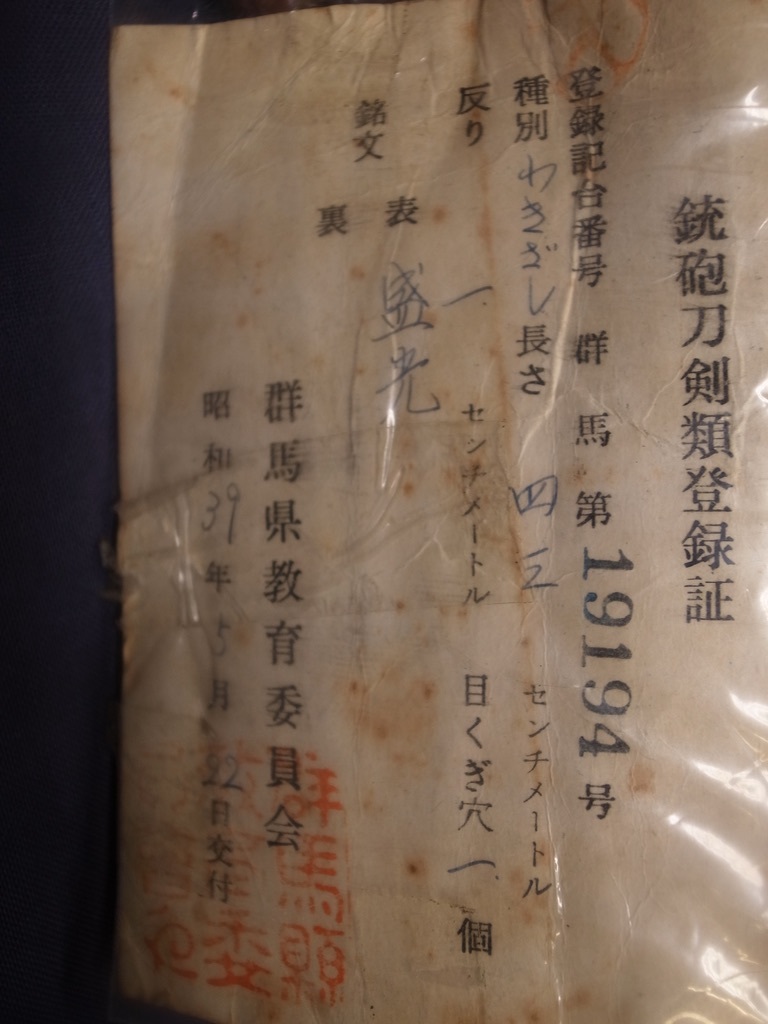 銃砲刀剣類登録証
登録記台番号 群馬 第 19194 号
種別 わきざし 長さ 四三 センチメートル
反り 一 センチメートル 目くぎ穴 一 個
銘文 表 盛光
裏
群馬県教育委員会
昭和 39 年 5 月 22 日交付
群馬縣